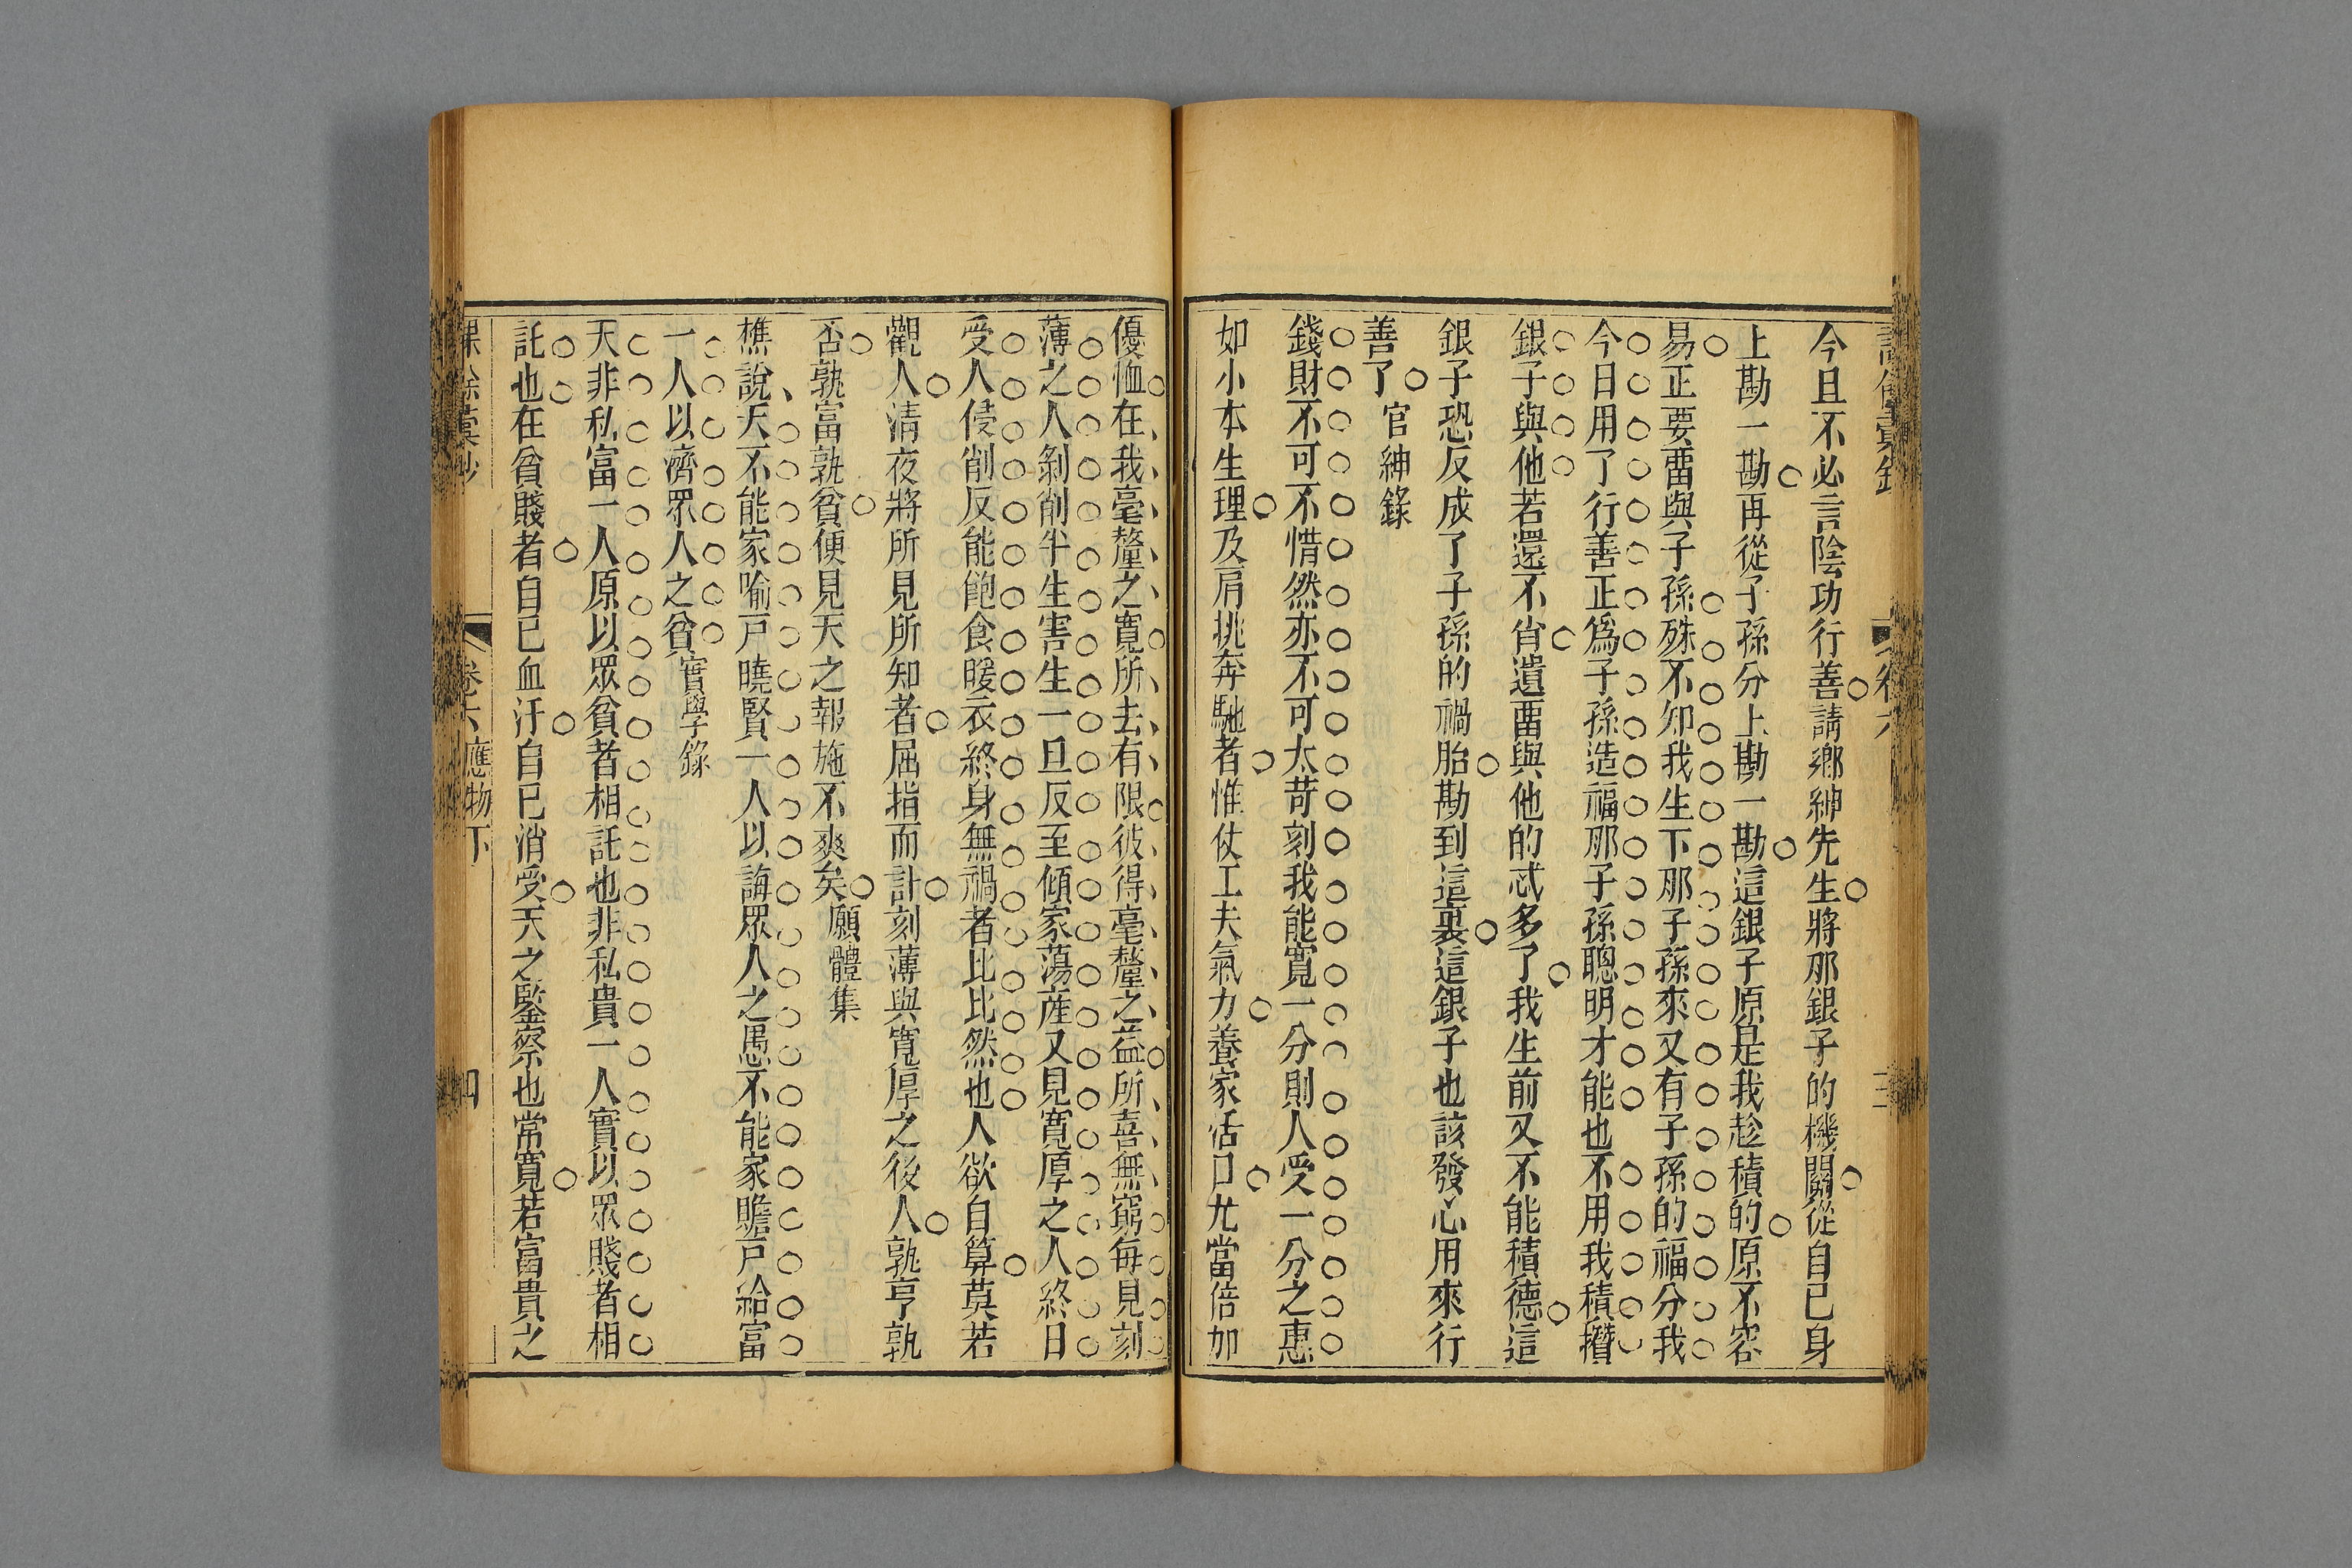 今且不必言陰功行善請鄉紳先生將那銀子的機關從自己身
上勘一勘再從子孫分上勘一勘這銀子原是我趁積的原不容
易正要畱與子孫殊不知我生下那子孫來又有子孫的福分我
今日用了行善正爲子孫造福那子孫聰明才能也不用我積攢
銀子與他若還不肖遺畱與他的忒多了我生前又不能積德這
銀子恐反成了子孫的禍胎勘到這裏這銀子也該發心用來行
善了 官紳錄
錢財不可不惜然亦不可太苛刻我能寬一分則人受一分之惠
如小本生理及肩挑奔馳者惟仗工夫氣力養家活口尤當倍加
優恤在我毫釐之寬所去有限彼得毫釐之益所喜無窮每見刻
薄之人剝削半生害生一旦反至傾家蕩產又見寬厚之人終日
受人侵削反能飽食暖衣終身無禍者比比然也人欲自算莫若
觀人清夜將所見所知者屈指而計刻薄與寬厚之後人孰亨孰
否孰富孰貧便見天之報施不爽矣 願體集
樵說天不能家喻戸曉賢一人以誨眾人之愚不能家贍戸給富
一人以濟眾人之貧 實學錄
天非私富一人原以眾貧者相託也非私貴一人實以眾賤者相
託也在貧賤者自己血汗自己消受天之鑒察也常寬若富貴之
卷六應物下
四